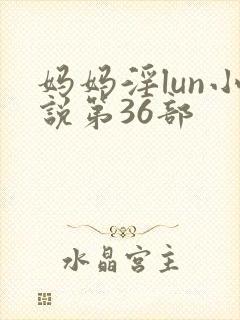 妈妈淫lun小
說第36部
水晶宫主